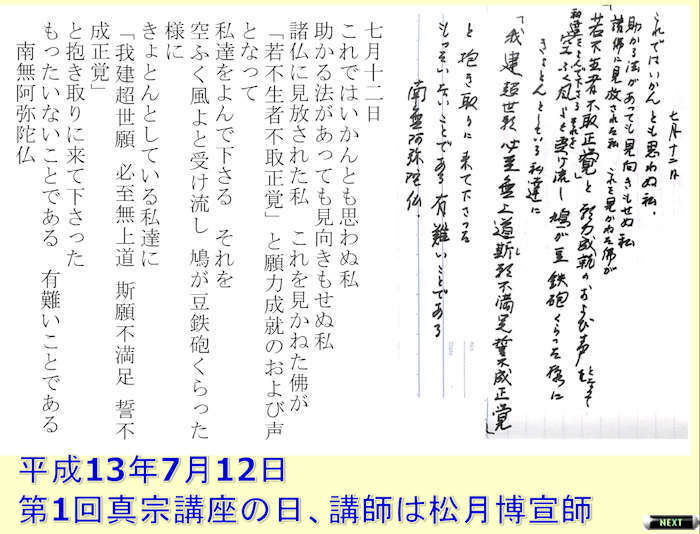 七月十二日
これではいかんとも思わぬ私、
助かる法があっても見向きもせぬ私
諸佛に見放された私 これを見かねた佛が
「若不生者不取正覚」と 願力成就のおよび声となって
私達をよんで下さる それを
空ふく風よと受け流し 鳩が豆鉄砲くらった様に
きょとんとしている私達に
「我建超世願 必至無上道斯願不満足誓不成正覚」
と抱き取りに来て下さった
もったいないことである 有難いことである
南無阿弥陀佛
七月十二日
これではいかんとも思わぬ私
助かる法があっても見向きもせぬ私
諸仏に見放された私 これを見かねた佛が
「若不生者不取正覚」と願力成就のおよび声
となって
私達をよんで下さる それを
空ふく風よと受け流し 鳩が豆鉄砲くらった
様に
きょとんとしている私達に
「我建超世願 必至無上道 斯願不満足 誓不
成正覚」
と抱き取りに来て下さった
もったいないことである 有難いことである
南無阿弥陀仏
平成13年7月12日
第1回真宗講座の日、講師は松月博宣師
NEXT